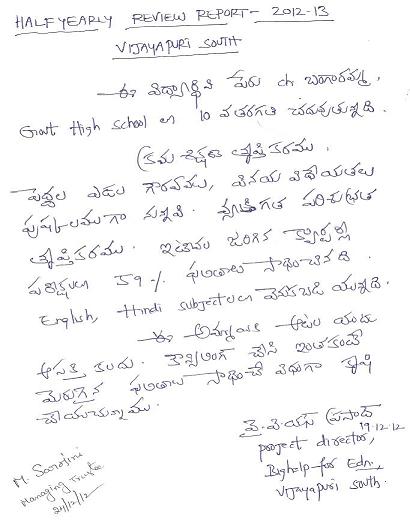 HALF YEARLY REVIEW REPORT- 2012-13
VIJAYAPURI SOUTH
ఈ విద్యార్థిని పేరు ch బంగారమ్మ,
Govt High school లో 10 వ తరగతి చదువుతున్నది.
క్రమశిక్షణ తృప్తికరము.
పెద్దల ఎడల గౌరవము, వినయ విధేయతలు
పుష్కలముగా ఉన్నవి. వ్యక్తిగత పరిశుభ్రత
తృప్తికరము. ఇటీవల జరిగిన క్వార్టర్లీ
పరీక్షలలో 59 % ఫలితాలు సాధించినది.
English, Hindi subjectలలో వెనుకబడి యున్నది.
ఈ అమ్మాయికి ఆటల యందు
ఆసక్తి కలదు. కౌన్సిలింగ్ చేసి ఇంతకంటే
మెరుగైన ఫలితాలు సాధించే విధంగా కృషి
చేయుచున్నాము.
వై. వి. యస్ ప్రసాద్
19-12-12
project director,
Bighelp-for Edn.,
Vijayapuri South.
M. Sarojini
Managing Trustee
21/12/12